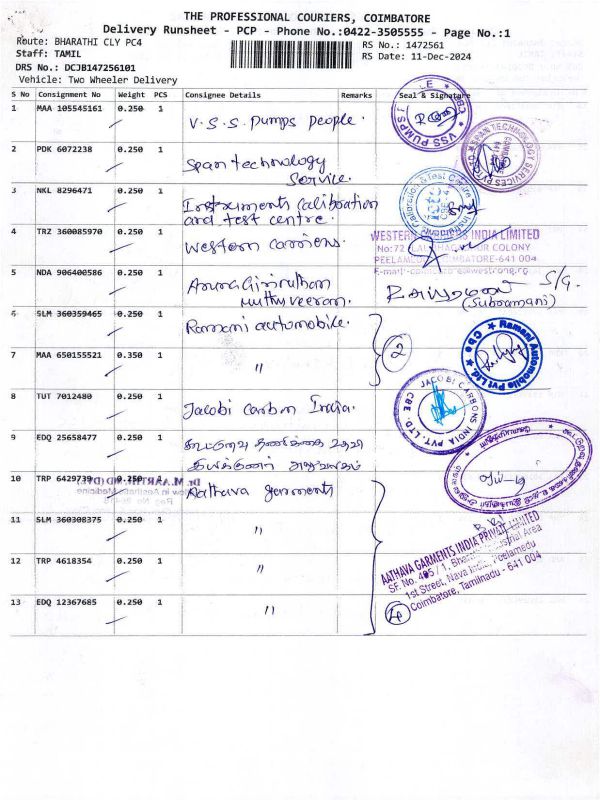 THE PROFESSIONAL COURIERS, COIMBATORE
Delivery Runsheet - PCP - Phone No.:0422-3505555 - Page No.:1
Route: BHARATHI CLY PC4
RS No.: 1472561
Staff: TAMIL
RS Date: 11-Dec-2024
DRS No.: DCJB147256101
Vehicle: Two Wheeler Delivery
S No Consignment No Weight PCS Consignee Details Remarks Seal & Signature
1 MAA 105545161 0.250 1 V.S.S. Pumps people.
VSS PUMPS CBE
2 PDK 6072238 0.250 1 Span technology
Service.
SPAN TECHNOLOGY SERVICES
3 NKL 8296471 0.250 1 Instruments calibration
and test centre.
Instrument Calibration & Test Centre
4 TRZ 360085970 0.250 1 Western carriers.
WESTERN INDIA LIMITED
No:72 COLONY
PEELAMEDU, COIMBATORE-641 004
5 NDA 906400586 0.250 1 Arunagirinathan
muthuveeran.
S/G.
(Subramani)
6 SLM 360359465 0.250 1 Ramani automobile.
2
Ramani Automobile Pvt Ltd. Cbe
7 MAA 650155521 0.350 1 "
8 TUT 7012480 0.250 1 Jacobi Carbon India.
JACOBI CARBONS INDIA PVT. LTD. CBE
9 EDQ 25658477 0.250 1 கூட்டுறவு தணிக்கை உதவி
இயக்குனர் அலுவலகம்
10 TRP 6429739 0.250 1 Aathava garments
Dr. M. AARTHI MD (DVL)
11 SLM 360308375 0.250 1 "
AATHAVA GARMENTS INDIA PRIVATE LIMITED
SF. No. 405 / 1, Industrial Area
1st Street, Nava India, Peelamedu
Coimbatore, Tamilnadu - 641 004
12 TRP 4618354 0.250 1 "
4
13 EDQ 12367685 0.250 1 "